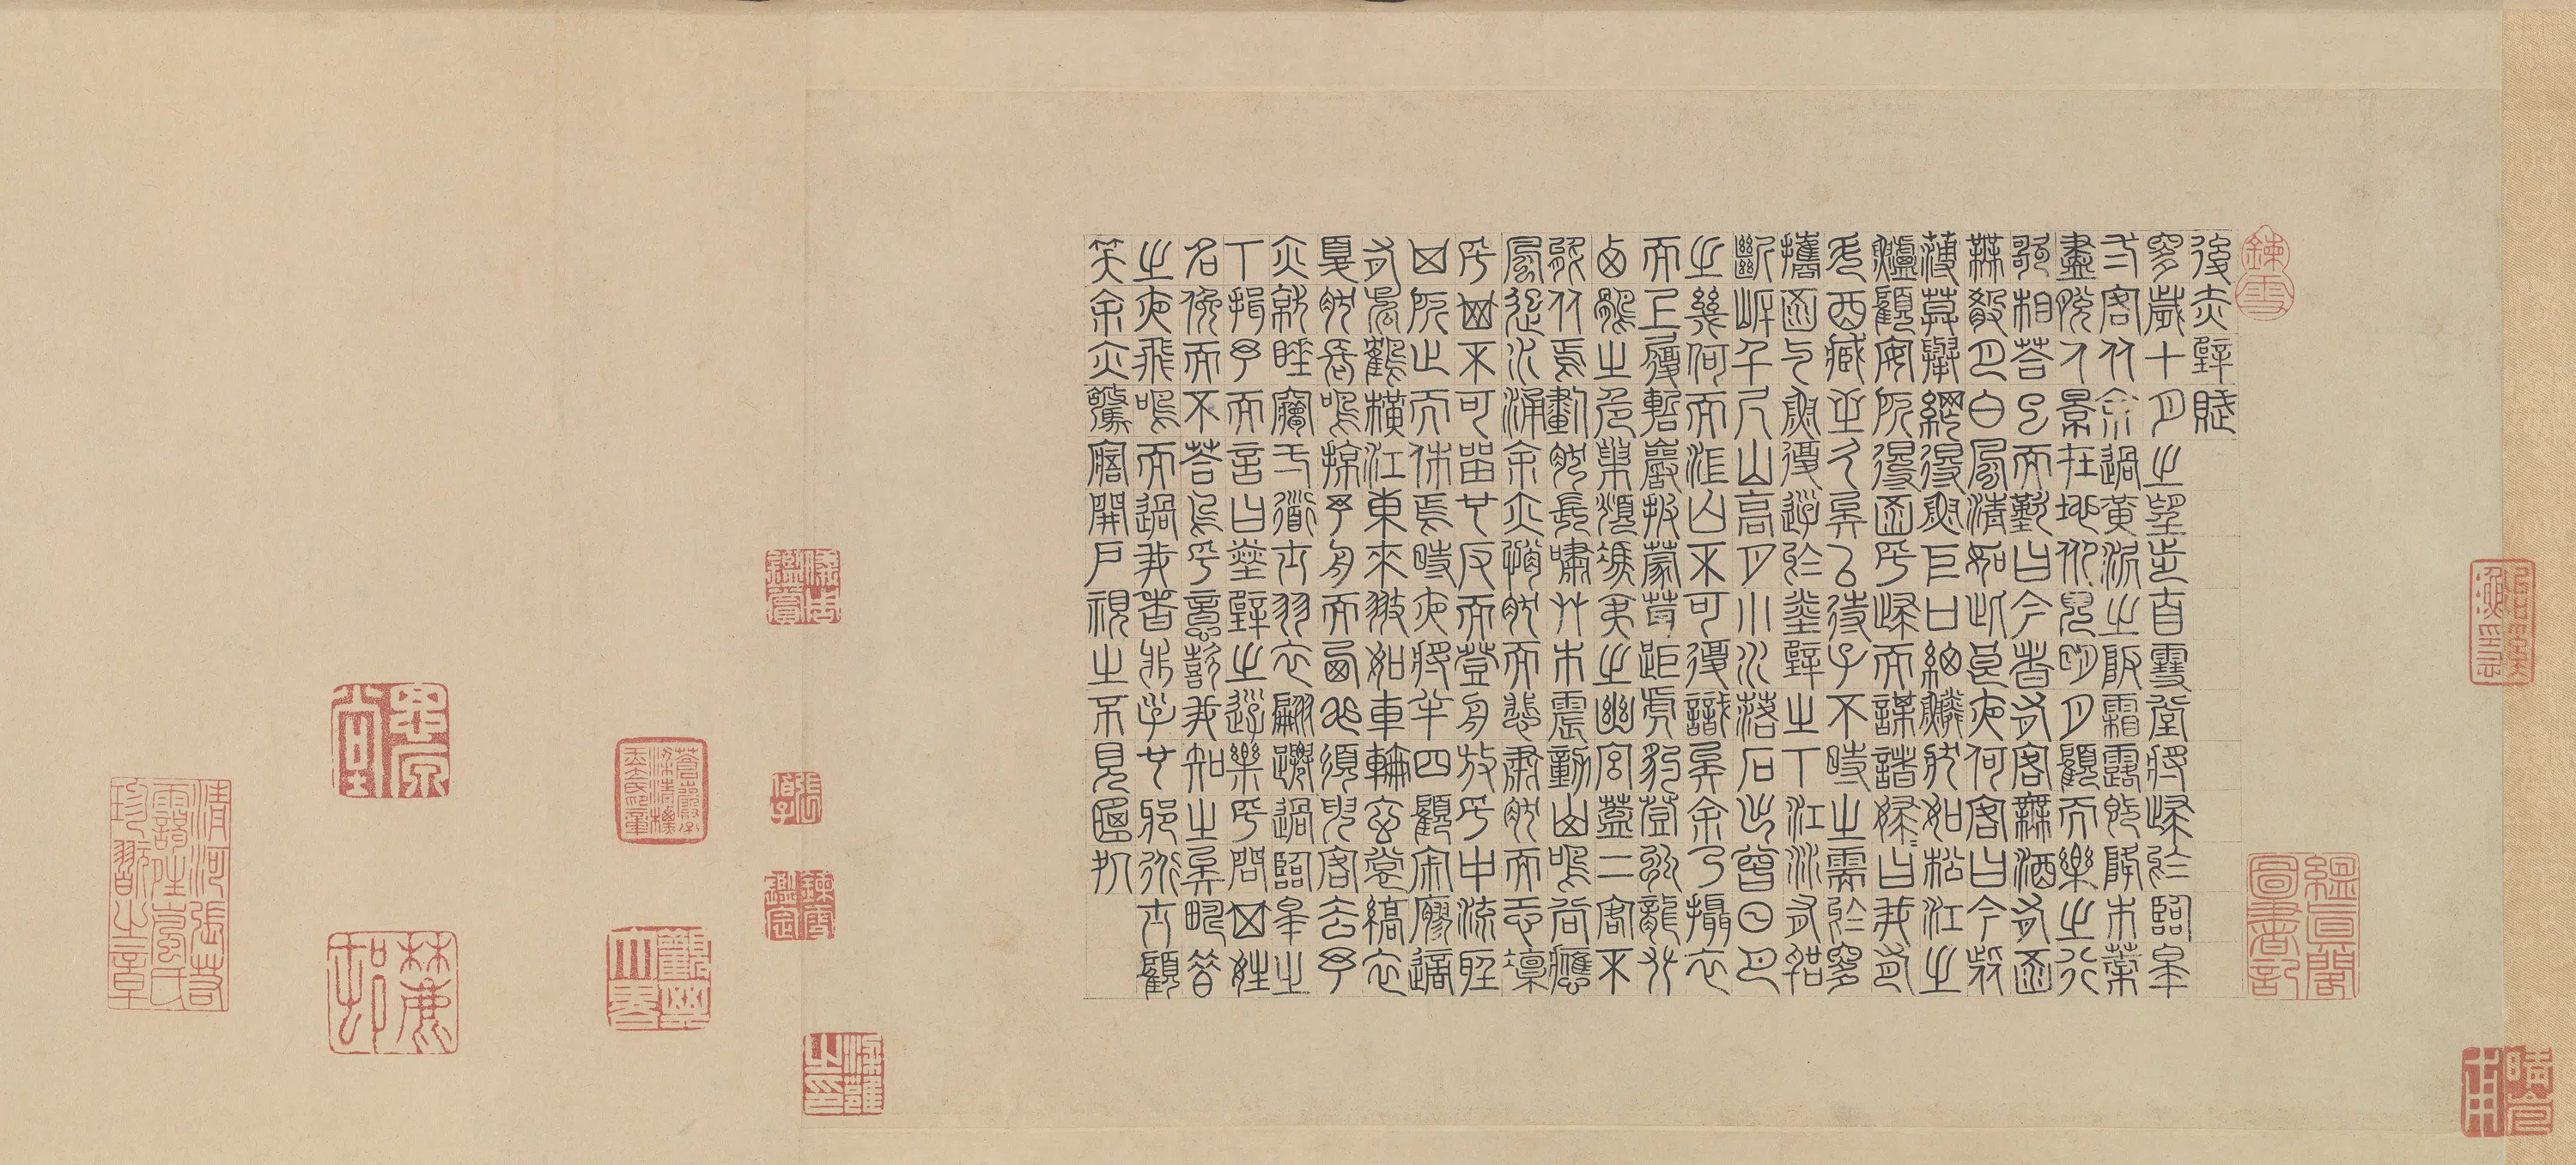 後赤壁賦
是歲十月之望步自雪堂將歸於臨皋
二客从余過黃泥之阪霜露既降木葉
盡脫人景在地仰見明月顧而樂之行
歌相荅已而歎曰今者有客無酒有酒
無殽月白風清如此良夜何客曰今者
薄莫舉網得魚巨口細鱗狀如松江之
鱸顧安所得酒乎歸而謀諸婦婦曰我有
斗酒藏之久矣以待子不時之需於是
攜酒與魚復遊於赤壁之下江流有聲
斷岸千尺山高月小水落石出曾日月
之幾何而江山不可復識矣余乃攝衣
而上履巉巖披蒙茸距虎豹登虯龍攀
栖鶻之危巢俯馮夷之幽宮蓋二客不
能从焉劃然長嘯草木震動山鳴谷應
風起水涌余亦悄然而悲肅然而恐凜
乎其不可留也反而登舟放乎中流聽
其所止而休焉時夜將半四顧寂寥適
有孤鶴橫江東來翅如車輪玄裳縞衣
戛然長鳴掠予舟而西也須臾客去予
亦就睡夢二道士羽衣翩躚過臨皋之
下揖予而言曰赤壁之遊樂乎問其姓
名俛而不荅嗚呼噫嘻我知之矣疇昔
之夜飛鳴而過我者非子也邪道士顧
笑余亦驚寤開戶視之不見其處
鍊雪
鍊雪鑑定
觀其大略
清河張若靄晴嵐氏珍翫之章